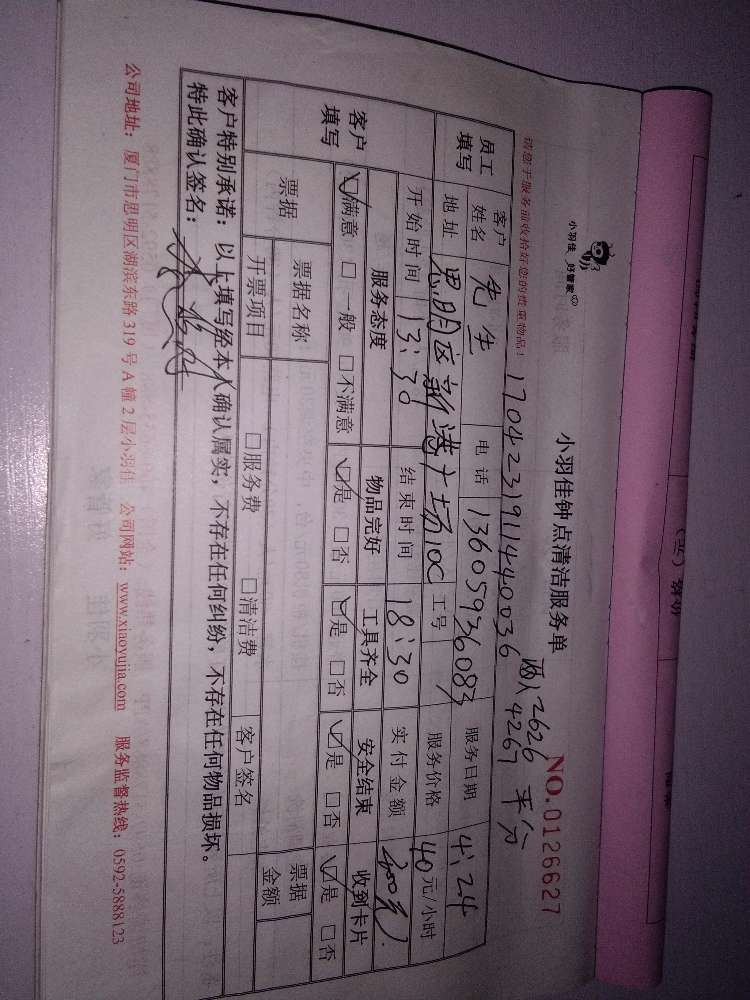 小羽佳 好管家
小羽佳钟点清洁服务单
NO.0126627
请您于服务前收拾好您的贵重物品！
17042319114440036
两人2626 平分
4267
员工填写
客户姓名 先生 电话 13605936083 服务日期 4:24
地址 思明区新港广场10C 工号 服务价格 40元/小时
开始时间 13:30 结束时间 18:30 实付金额 400元
客户填写
服务态度 物品完好 工具齐全 安全结束 收到卡片
☑满意 □一般 □不满意 ☑是 □否 ☑是 □否 ☑是 □否 ☑是 □否
票据 票据名称: 客户签名 票据金额
开票项目 □服务费 □清洁费
客户特别承诺：以上填写经本人确认属实，不存在任何纠纷，不存在任何物品损坏。
特此确认签名：
公司地址：厦门市思明区湖滨东路319号A幢2层小羽佳 公司网站：www.xiaoyujia.com 服务监督热线：0592-5888123